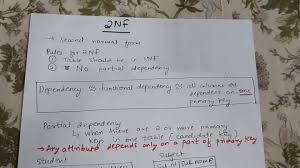 2NF
→ Second normal form
Rules for 2NF
① Table should be in 1NF
② No partial dependency
Dependency functional dependency all columns are
dependent on one
primary key
Partial dependency
↳ when there are 2 or more primary
keys in one table (candidate key)
→ Any attribute depends only on a part of primary key
Student Subject